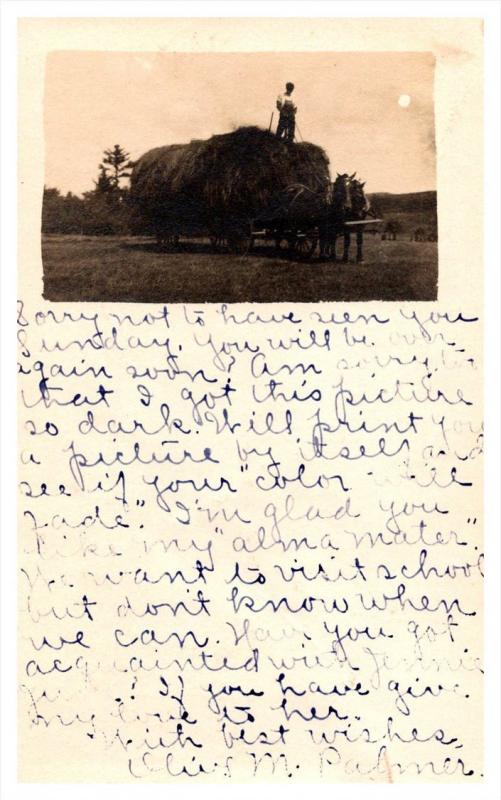 Sorry not to have seen you
Sunday. You will be over
again soon? Am sorry, too
that I got this picture
so dark. Will print you
a picture by itself and
see if your "color will
fade". I'm glad you
like my "alma mater".
We want to visit school
but don't know when
we can. Have you got
acquainted with Jennie
? If you have give
my love to her.
With best wishes,
M. Palmer.